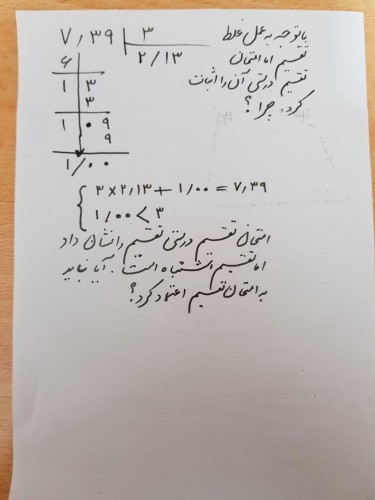 ۷,۳۹ | ۳
۲/۱۳
۶
۱ ۳
۳
۱ ۰ ۹
۹
۱/۰۰
باتوجه به عمل غلط
تقسیم اما امتحان
تقسیم درستی آن را اثبات
کرد. چرا؟
۳×۲٫۱۳+۱/۰۰=۷٫۳۹
۱/۰۰<۳
امتحان تقسیم درستی تقسیم را نشان داد
اما تقسیم اشتباه است. آیا نباید
به امتحان تقسیم اعتماد کرد؟